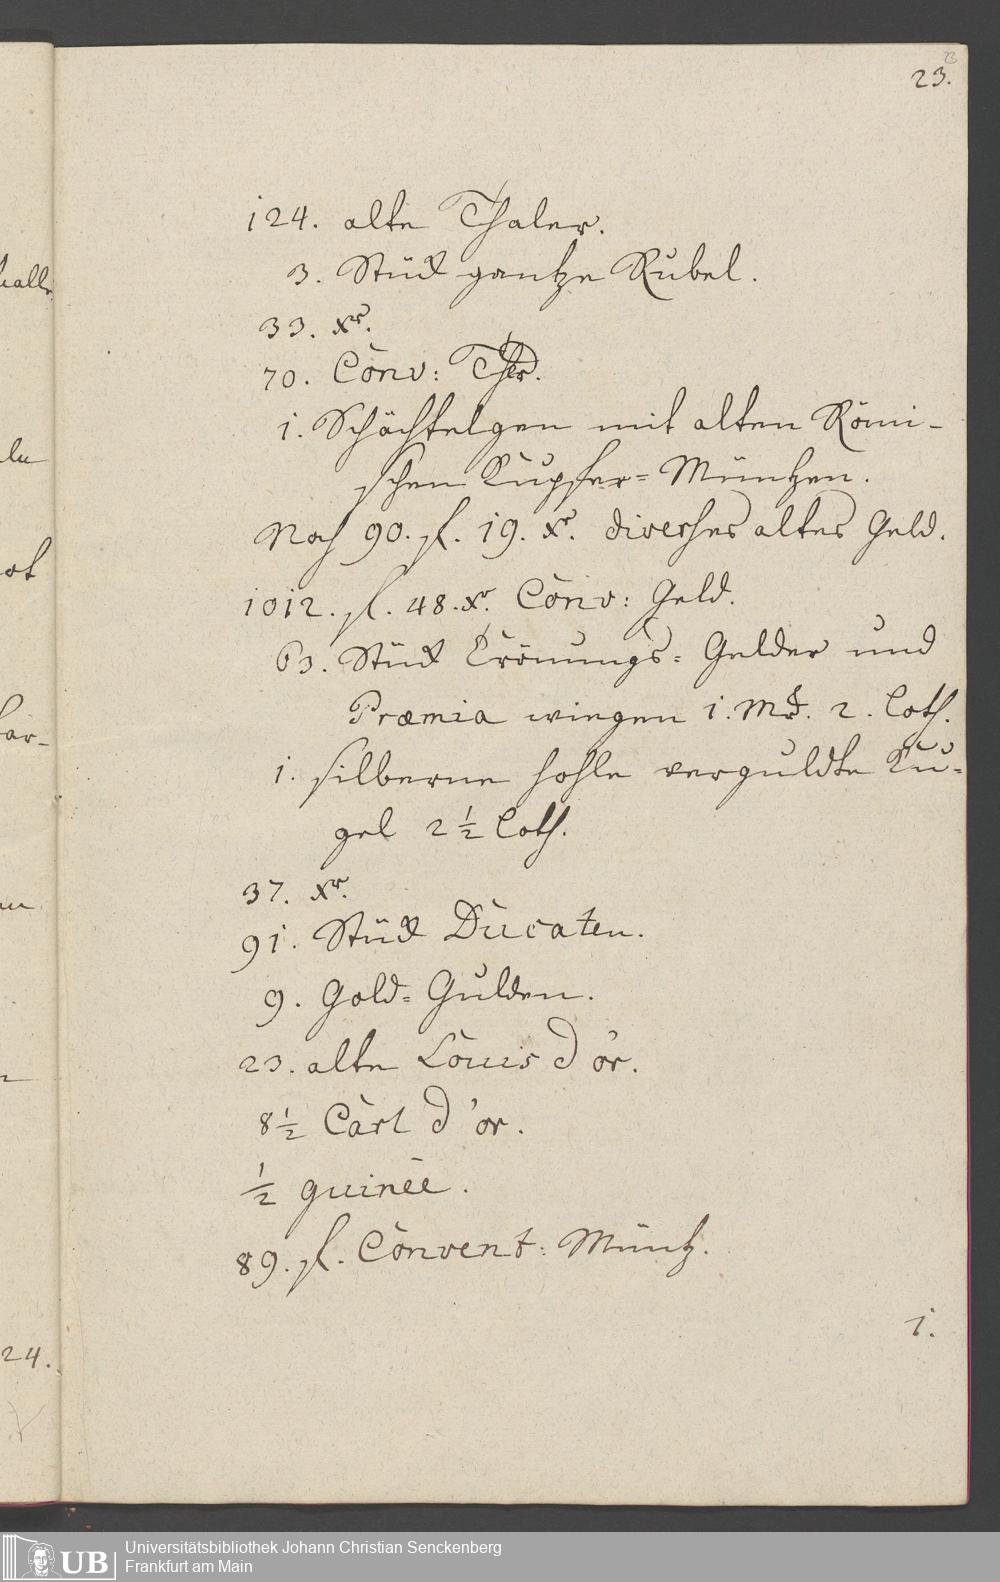 23.
124. alte Thaler.
3. Stück gantze Rubel.
33. xr.
70. Conv: Thlr.
1. Schächtelgen mit alten Römi-
schen Kupfer-Müntzen.
Noch 90. fl. 19. xr. diverses altes Geld.
1012. fl. 48. xr. Conv: Geld.
63. Stück Crönungs-Gelder und
Præmia wiegen 1. Mrck. 2. Loth.
1. silberne hohle verguldte Ku-
gel 2 1/2 Loth.
37. xr.
91. Stück Ducaten.
9. Gold-Gulden.
23. alte Louis d'or.
8 1/2 Carl d'or.
1/2 guinée.
89. fl. Convent: Müntz.
1.
24.
UB Universitätsbibliothek Johann Christian Senckenberg
Frankfurt am Main